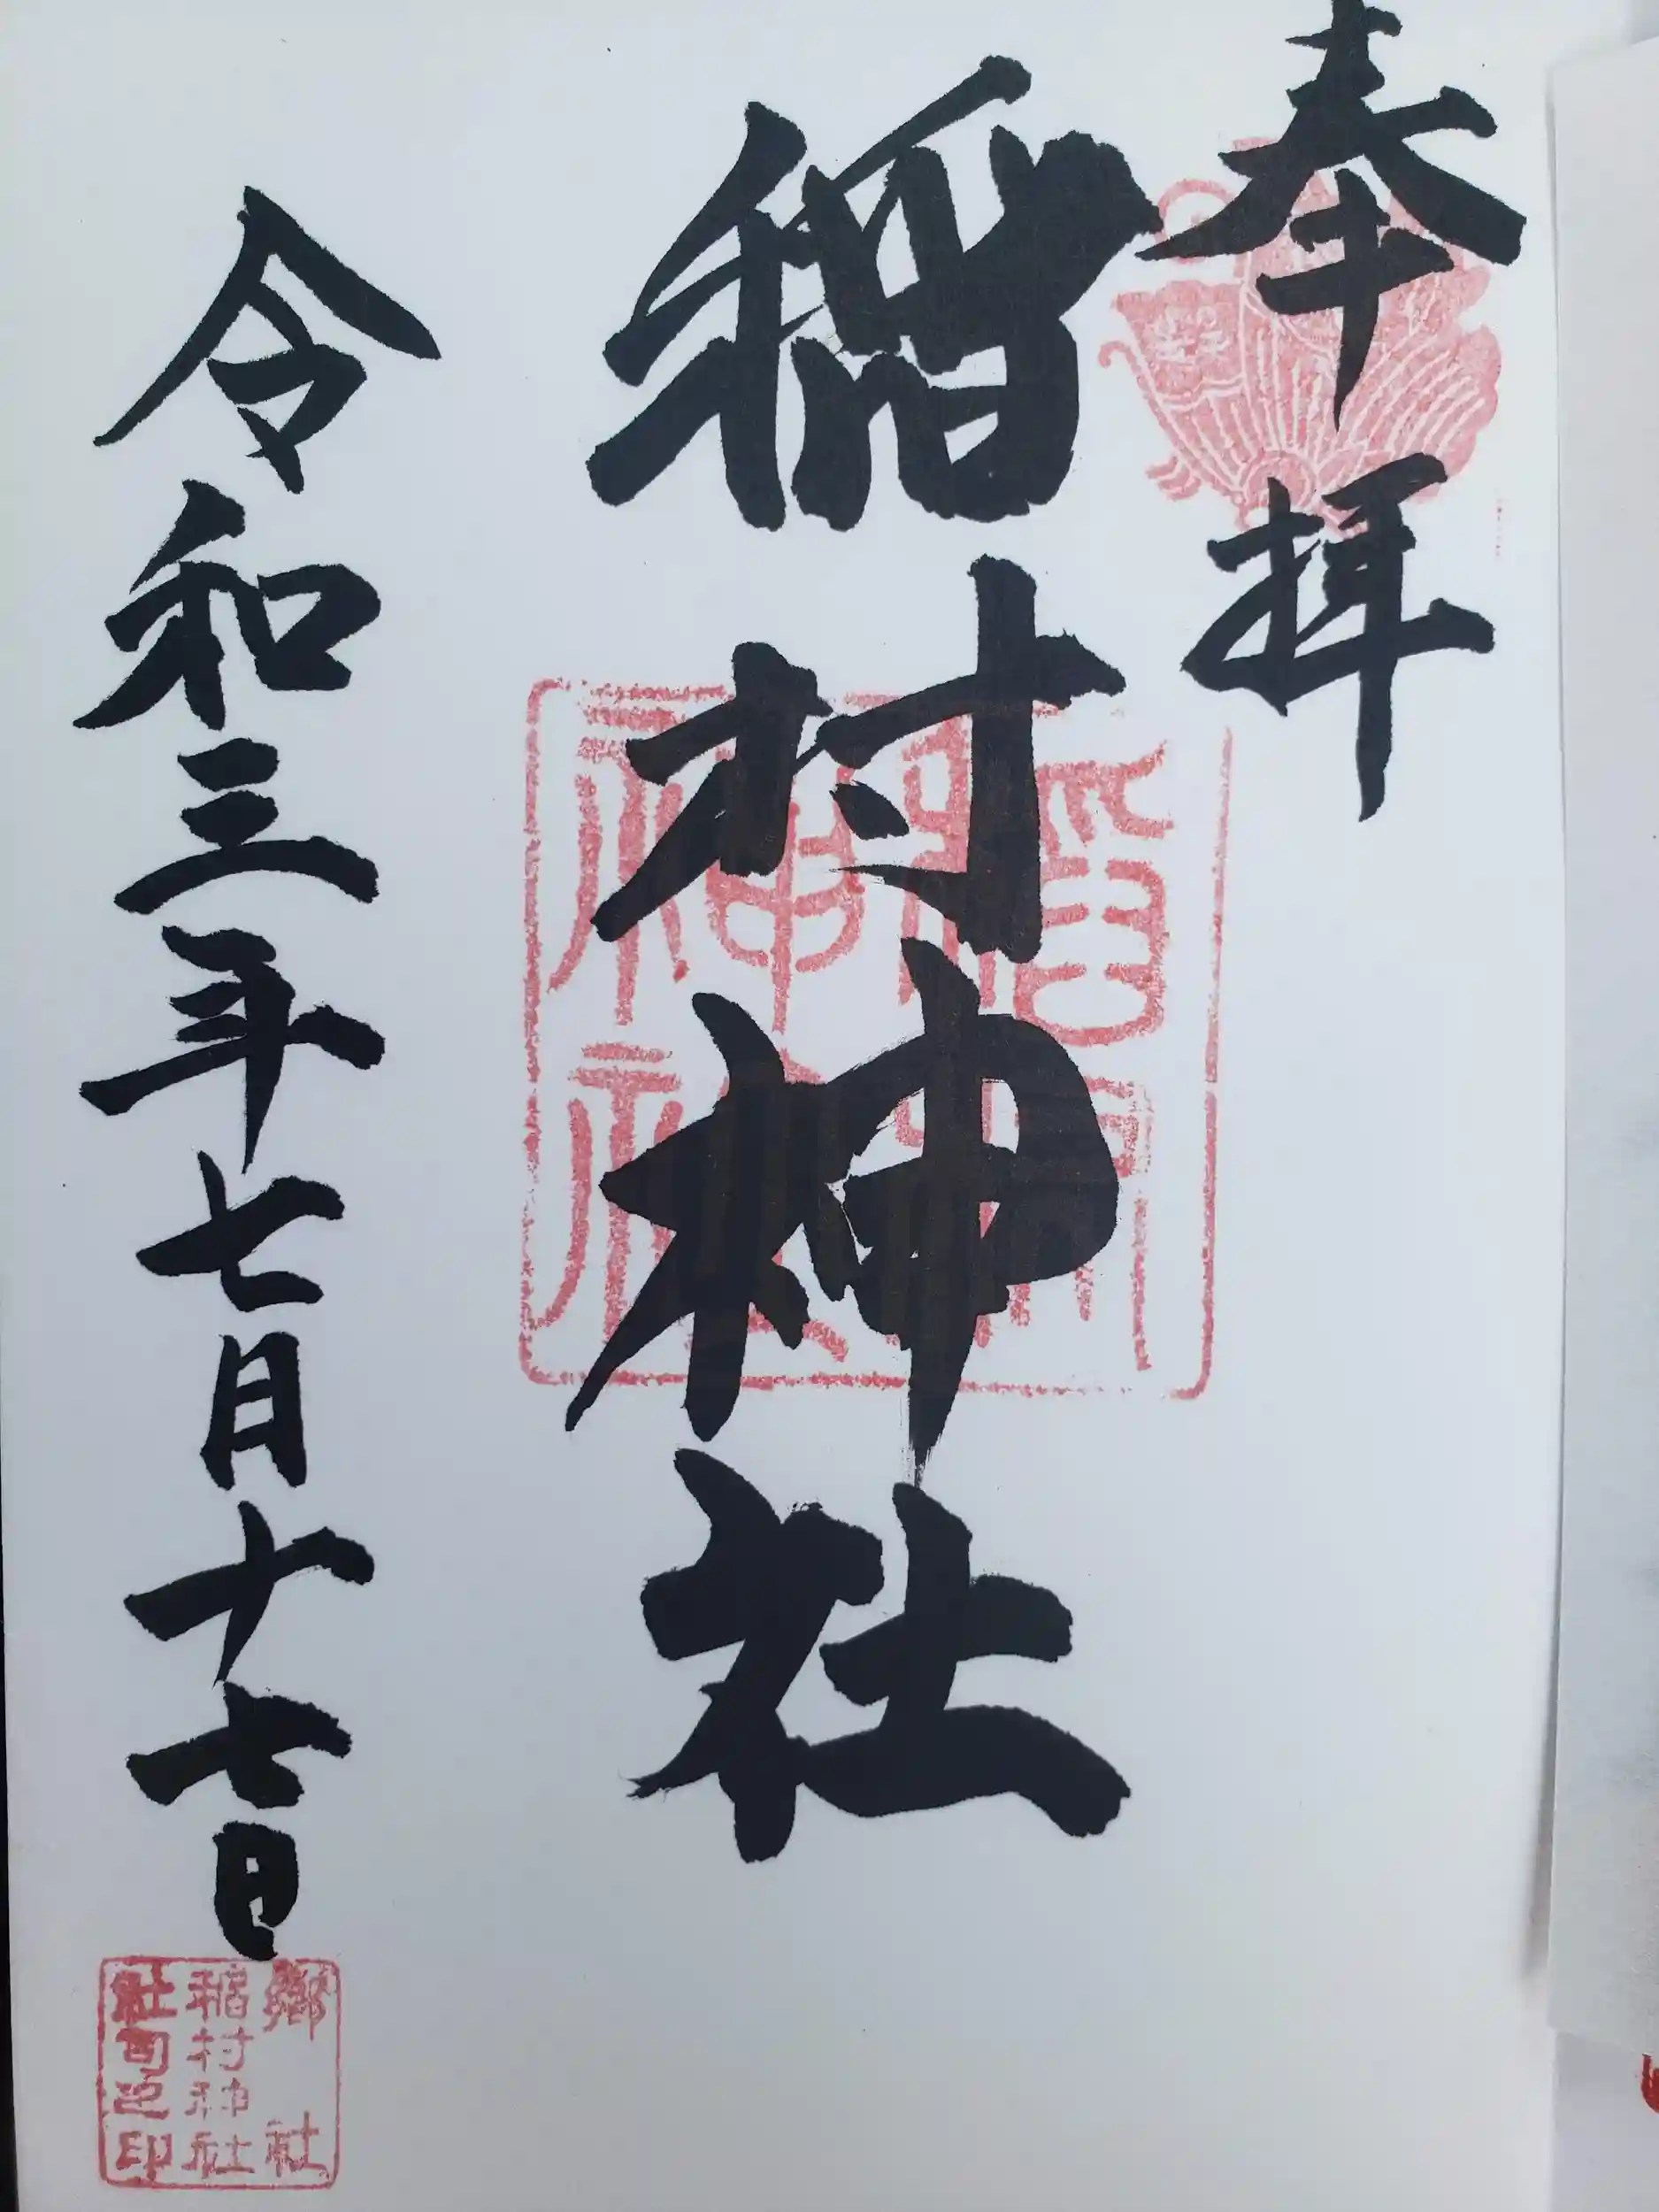 奉拝
稲村神社
令和三年七月十七日
稲村
神社
郷社
稲村神社
社司之印